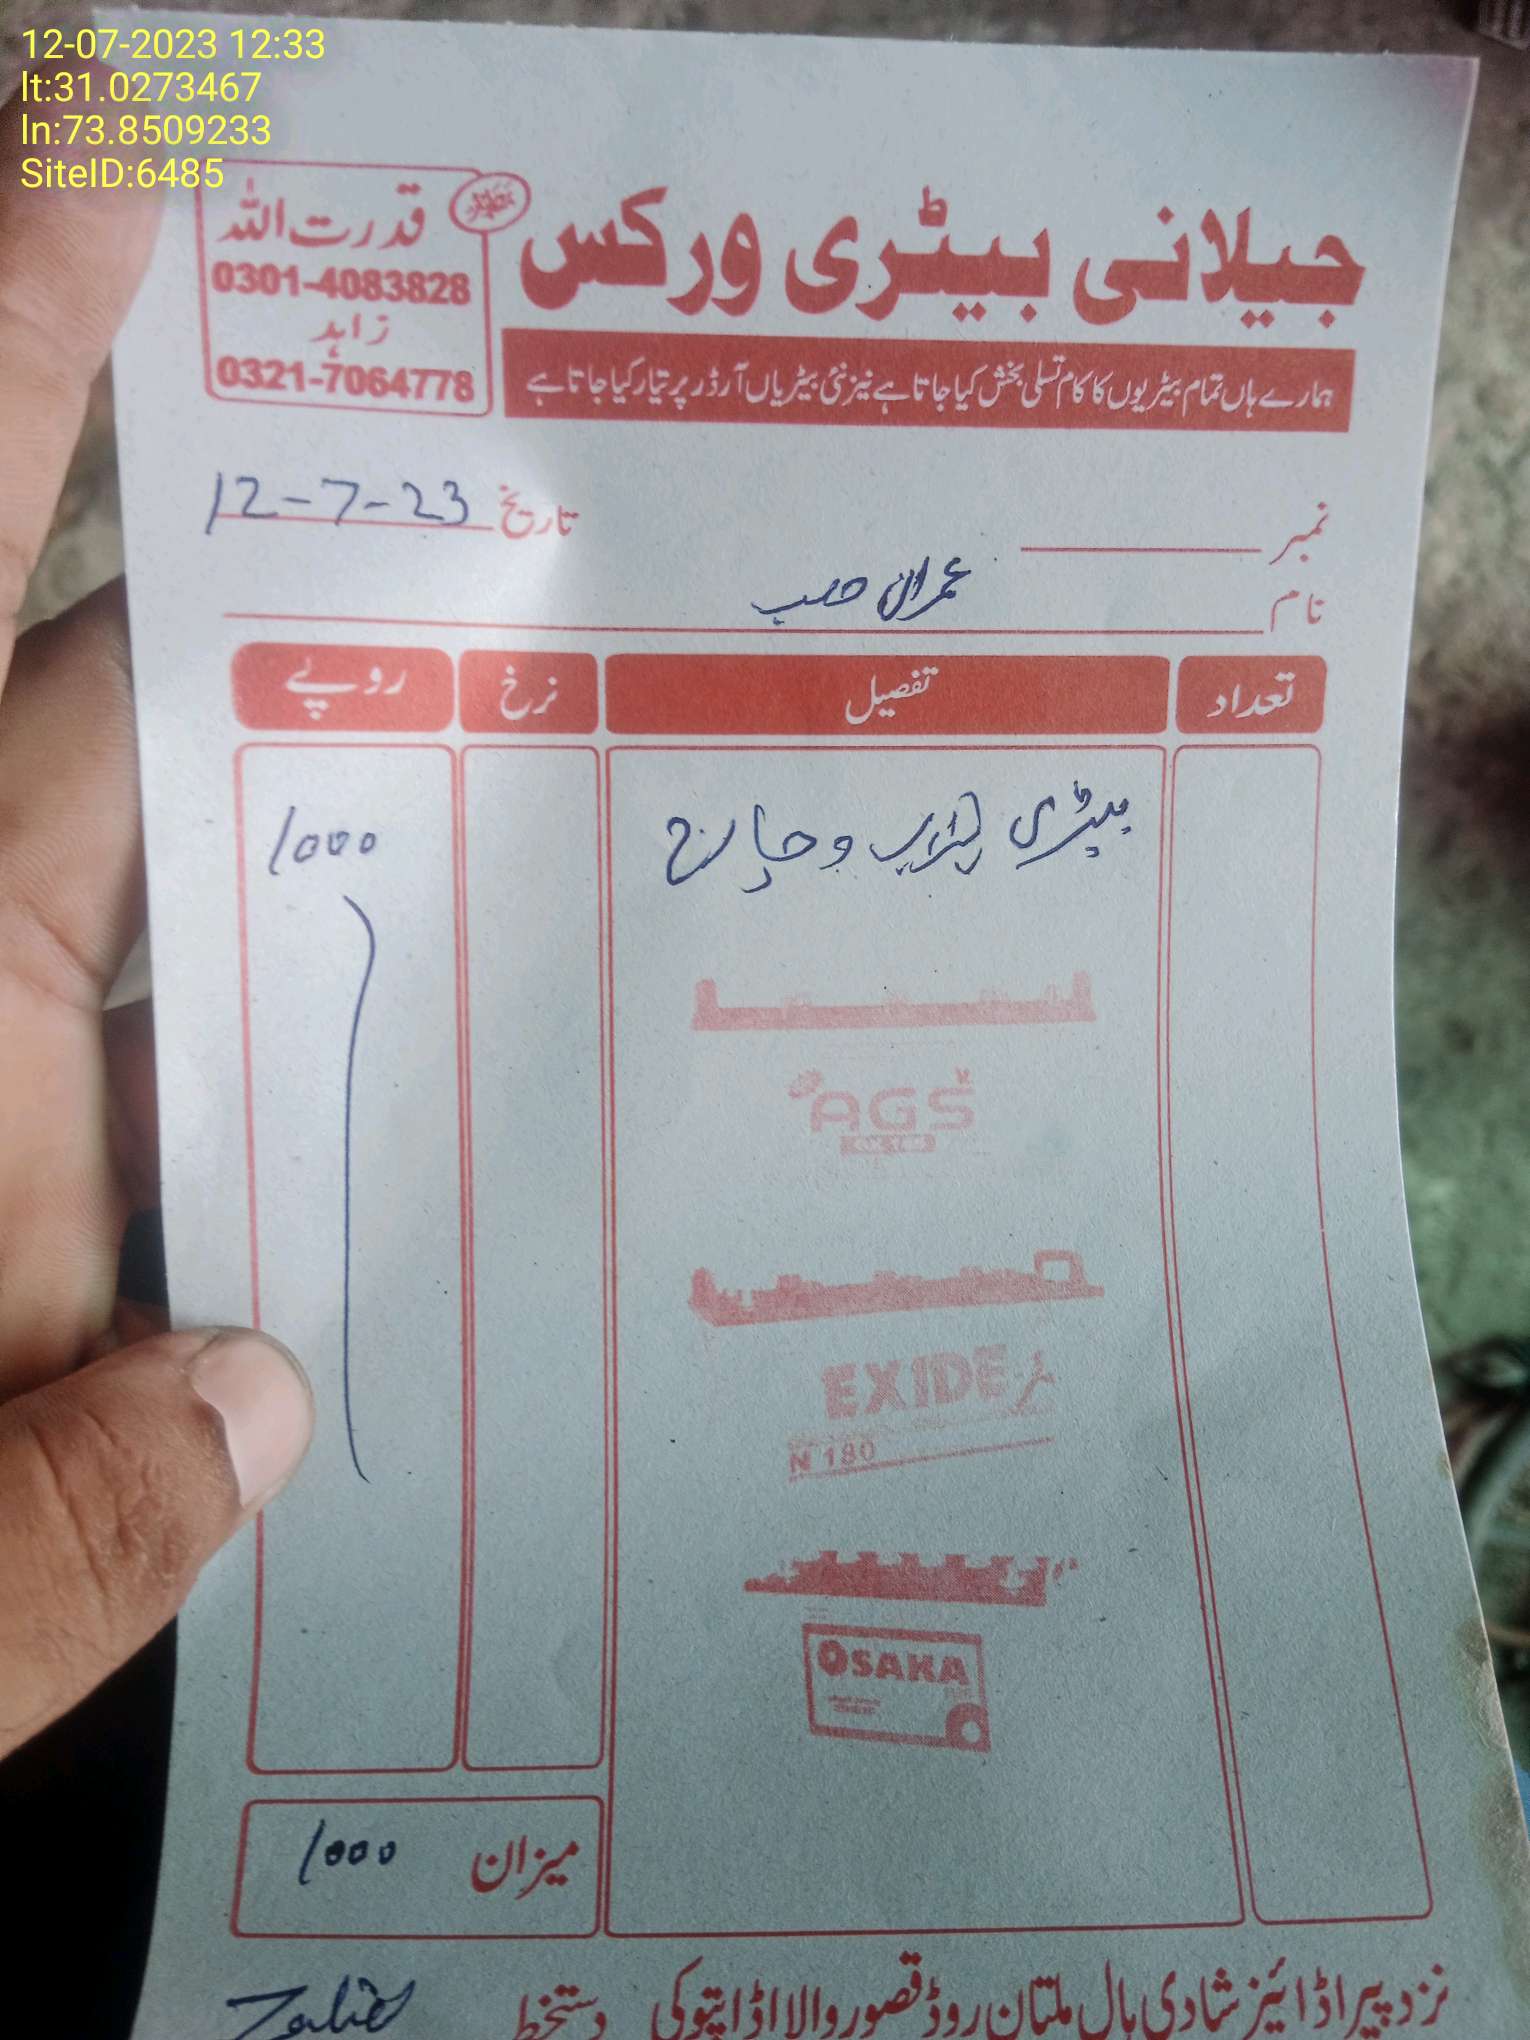 12-07-2023 12:33
lt:31.0273467
ln:73.8509233
SiteID:6485
جیلانی بیٹری ورکس
قدرت اللہ
0301-4083828
زاہد
0321-7064778
ہمارے ہاں تمام بیٹریوں کا کام تسلی بخش کیا جاتا ہے نیز نئی بیٹریاں آرڈر پر تیار کیا جاتا ہے
نمبر تاریخ 12-7-23
نام عمران
تعداد تفصیل نرخ روپے
بیٹری و چارج 1000
AGS
EXIDE
N 180
OSAKA
میزان 1000
نزد پیراڈائیز شادی ہال ملتان روڈ قصور والا اڈا پتوکی دستخط Zahid